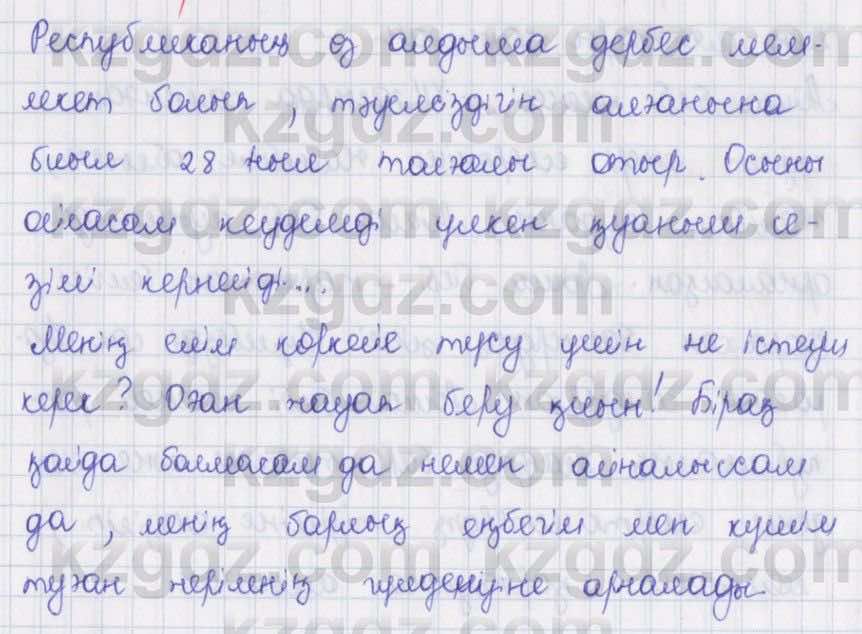 Республиканың өз алдына дербес мем-
лекет болып, тәуелсіздігін алғанына
биыл 28 жыл толғалы отыр. Осыны
ойласам кеудемді үлкен қуаныш се-
зімі кернейді....
Менің елім көркейе түсу үшін не істеуің
керек? Оған жауап беру қиын! Бірақ
қайда болмасам да немен айналыссам
да, менің барлық еңбегім мен күшім
туған жерімнің гүлденуіне арналады
kzgdz.com